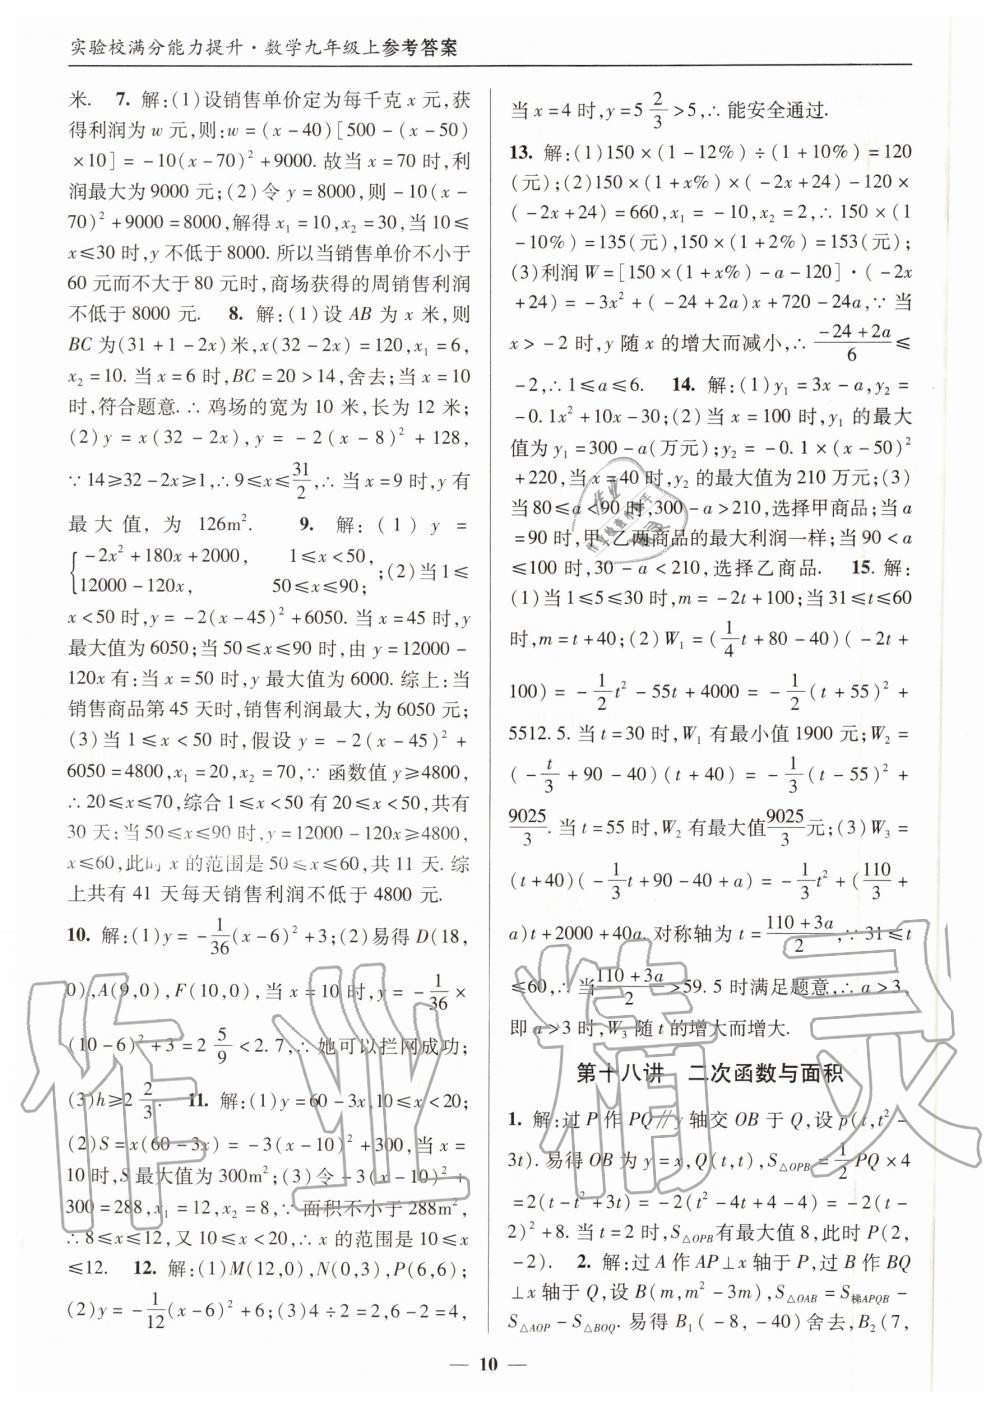 实验校满分能力提升·数学九年级上参考答案
米. 7. 解:(1)设销售单价定为每千克 x 元,获
得利润为 w 元,则:w=(x-40)[500-(x-50)
×10]=-10(x-70)²+9000. 故当 x=70 时,利
润最大为 9000 元;(2)令 y=8000,则-10(x-
70)²+9000=8000,解得 x₁=10,x₂=30,当 10≤
x≤30 时,y 不低于 8000. 所以当销售单价不小于
60 元而不大于 80 元时,商场获得的周销售利润
不低于 8000 元. 8. 解:(1)设 AB 为 x 米,则
BC 为(31+1-2x)米,x(32-2x)=120,x₁=6,
x₂=10. 当 x=6 时,BC=20>14,舍去;当 x=10
时,符合题意. ∴ 鸡场的宽为 10 米,长为 12 米;
(2)y=x(32-2x),y=-2(x-8)²+128,
∵14≥32-2x≥1,∴9≤x≤31/2,∴当 x=9 时,y 有
最大值,为 126m². 9. 解:(1)y=
{-2x²+180x+2000, 1≤x<50,
12000-120x, 50≤x≤90; ;(2)当 1≤
x<50 时,y=-2(x-45)²+6050. 当 x=45 时,y
最大值为 6050;当 50≤x≤90 时,由 y=12000-
120x 有:当 x=50 时,y 最大值为 6000. 综上:当
销售商品第 45 天时,销售利润最大,为 6050 元;
(3)当 1≤x<50 时,假设 y=-2(x-45)²+
6050=4800,x₁=20,x₂=70,∵ 函数值 y≥4800,
∴20≤x≤70,综合 1≤x<50 有 20≤x<50,共有
30 天;当 50≤x≤90 时,y=12000-120x≥4800,
x≤60,此时 x 的范围是 50≤x≤60,共 11 天. 综
上共有 41 天每天销售利润不低于 4800 元.
10. 解:(1)y=-1/36(x-6)²+3;(2)易得 D(18,
0),A(9,0),F(10,0),当 x=10 时,y=-1/36×
(10-6)²+3=2 5/9<2.7,∴她可以拦网成功;
(3)h≥2 2/3. 11. 解:(1)y=60-3x,10≤x<20;
(2)S=x(60-3x)=-3(x-10)²+300,当 x=
10 时,S 最大值为 300m²;(3)令-3(x-10)²+
300=288,x₁=12,x₂=8,∵ 面积不小于 288m²,
∴8≤x≤12,又 10≤x<20,∴x 的范围是 10≤x
≤12. 12. 解:(1)M(12,0),N(0,3),P(6,6);
(2)y=-1/12(x-6)²+6;(3)4÷2=2,6-2=4,
当 x=4 时,y=5 2/3>5,∴ 能安全通过.
13. 解:(1)150×(1-12%)÷(1+10%)=120
(元);(2)150×(1+x%)×(-2x+24)-120×
(-2x+24)=660,x₁=-10,x₂=2,∴150×(1
-10%)=135(元),150×(1+2%)=153(元);
(3)利润 W=[150×(1+x%)-a-120]·(-2x
+24)=-3x²+(-24+2a)x+720-24a,∵ 当
x>-2 时,y 随 x 的增大而减小,∴(-24+2a)/6≤
-2,∴1≤a≤6. 14. 解:(1)y₁=3x-a,y₂=
-0.1x²+10x-30;(2)当 x=100 时,y₁ 的最大
值为 y₁=300-a(万元);y₂=-0.1×(x-50)²
+220,当 x=40 时,y₂ 的最大值为 210 万元;(3)
当 80≤a<90 时,300-a>210,选择甲商品;当 a
=90 时,甲、乙两商品的最大利润一样;当 90<a
≤100 时,30-a<210,选择乙商品. 15. 解:
(1)当 1≤5≤30 时,m=-2t+100;当 31≤t≤60
时,m=t+40;(2)W₁=(1/4t+80-40)(-2t+
100)=-1/2t²-55t+4000=-1/2(t+55)²+
5512.5. 当 t=30 时,W₁ 有最小值 1900 元;W₂=
(-t/3+90-40)(t+40)=-1/3(t-55)²+
9025/3. 当 t=55 时,W₂ 有最大值9025/3元;(3)W₃=
(t+40)(-1/3t+90-40+a)=-1/3t²+(110/3+
a)t+2000+40a. 对称轴为 t=(110+3a)/2,∵31≤t
≤60,∴当(110+3a)/2>59.5 时满足题意,∴a>3.
即 a>3 时,W₃ 随 t 的增大而增大.
第十八讲 二次函数与面积
1. 解:过 P 作 PQ∥y 轴交 OB 于 Q,设 p(t,t²-
3t). 易得 OB 为 y=x,Q(t,t),S△OPB=1/2PQ×4
=2(t-t²+3t)=-2(t²-4t+4-4)=-2(t-
2)²+8. 当 t=2 时,S△OPB有最大值 8,此时 P(2,
-2). 2. 解:过 A 作 AP⊥x 轴于 P,过 B 作 BQ
⊥x 轴于 Q,设 B(m,m²-3m),S△OAB=S梯APQB-
S△AOP-S△BOQ. 易得 B₁(-8,-40)舍去,B₂(7,
— 10 —
作业精灵